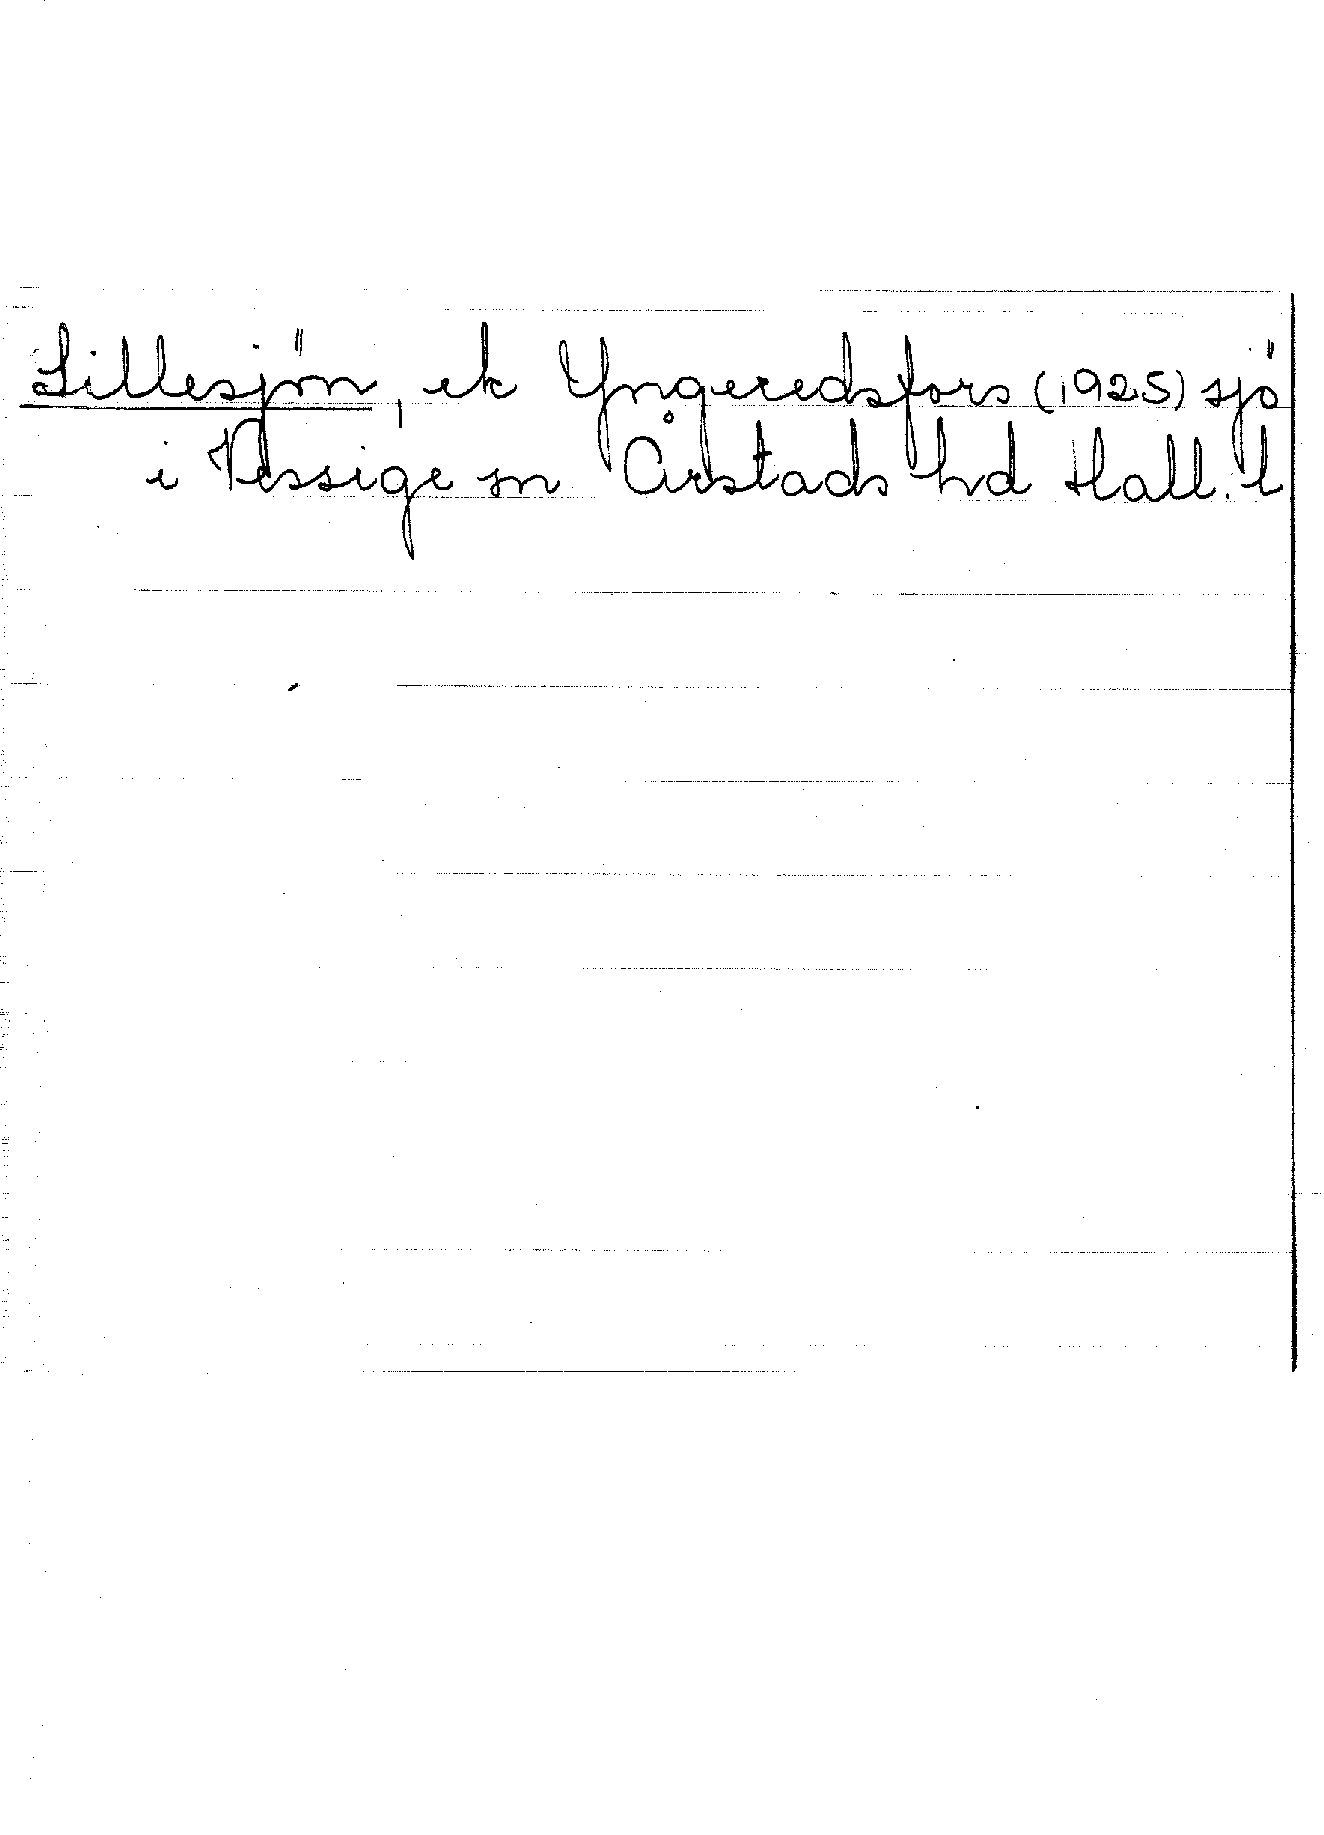 Lillesjön, ek Yngeredsfors (1925) sjö
i Vessige sn Årstads hd Hall. l